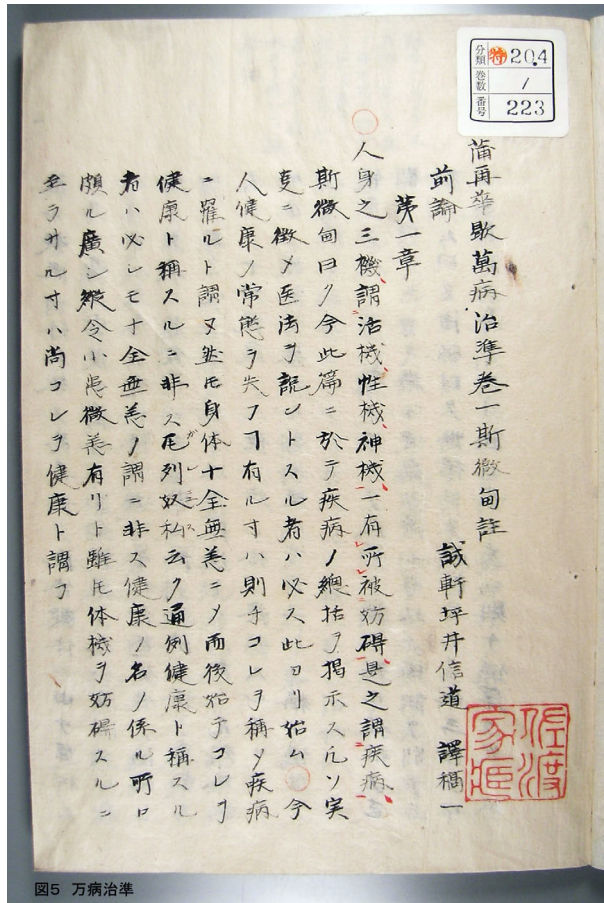 分類 特 20.4
巻数 1
番号 223
蒲再華歇萬病治準卷一斯微甸註
前論 誠軒坪井信道譯稿一
第一章
人身之三機謂活機性機神機一有所被妨碍是之謂疾病
斯微甸曰ク今此篇ニ於テ疾病ノ總括ヲ掲示ス凡ソ実
ニ徴メ医法ヲ説ントスル者ハ必ス此ヨリ始ム 今
人健康ノ常態ヲ失フヿ有ル寸ハ則チコレヲ称メ疾病
ニ罹ルト謂フ然𪜈身体十全無恙ニメ而後始テコレヲ
健康ト稱スルニ非ス瓦列奴私云ク通例健康ト稱スル
者ハ必シモ十全無恙ノ謂ニ非ス健康ノ名ノ係ル所ロ
頗ル廣シ縱令小恙微善有リト雖𪜈体機ヲ妨碍スルニ
至ラサル寸ハ尚コレヲ健康ト謂フ
図5 万病治準